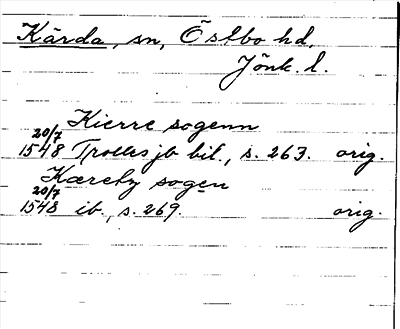 Kärda, sn, Östbo hd,
Jönk. l.
Kierre sogenn
20/7
1548 Trolles jb bil., s. 263. orig.
Kæreby sogen
20/7
1548 ib., s. 269. orig.